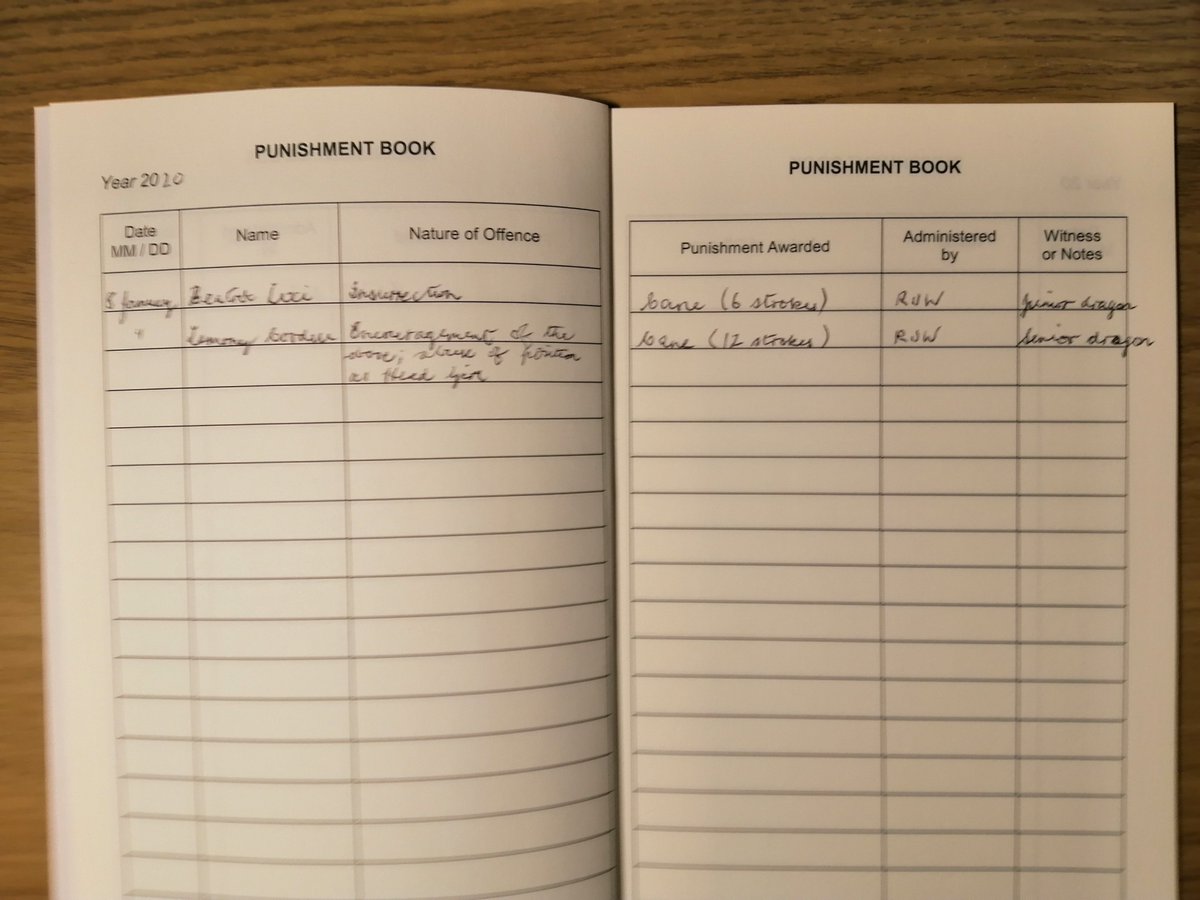 PUNISHMENT BOOK
Year 2020
Date
MM / DD
Name
Nature of Offence
5 January
Insurrection
"
Encouragement of the
above; abuse of position
as Head Girl
PUNISHMENT BOOK
Punishment Awarded
Administered
by
Witness
or Notes
Cane (6 strokes)
RJW
junior dragon
Cane (12 strokes)
RJW
senior dragon